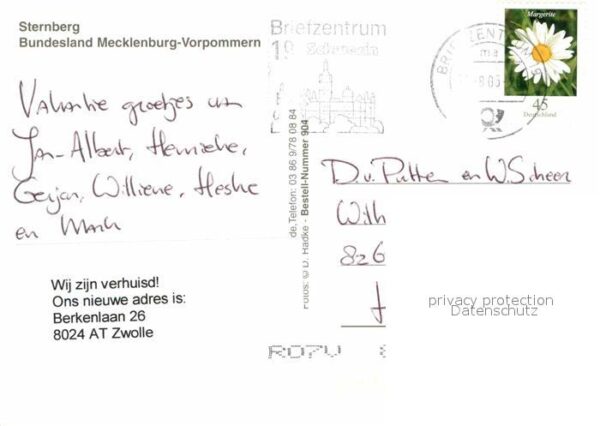 Sternberg
Bundesland Mecklenburg-Vorpommern
Vakantie groetjes van
Jan-Albert, Henrieke,
Gerjan, Williene, Heske
en Mark
Wij zijn verhuisd!
Ons nieuwe adres is:
Berkenlaan 26
8024 AT Zwolle
de.Telefon: 03.86.9/78 08 84
Fotos: © D. Hadke - Bestell-Nummer 904
Briefzentrum
19
BRIEFZENTRUM
Margerite
45
Deutschland
D.v. Putten en W Scheer
Wilh
826
J
privacy protection
Datenschutz